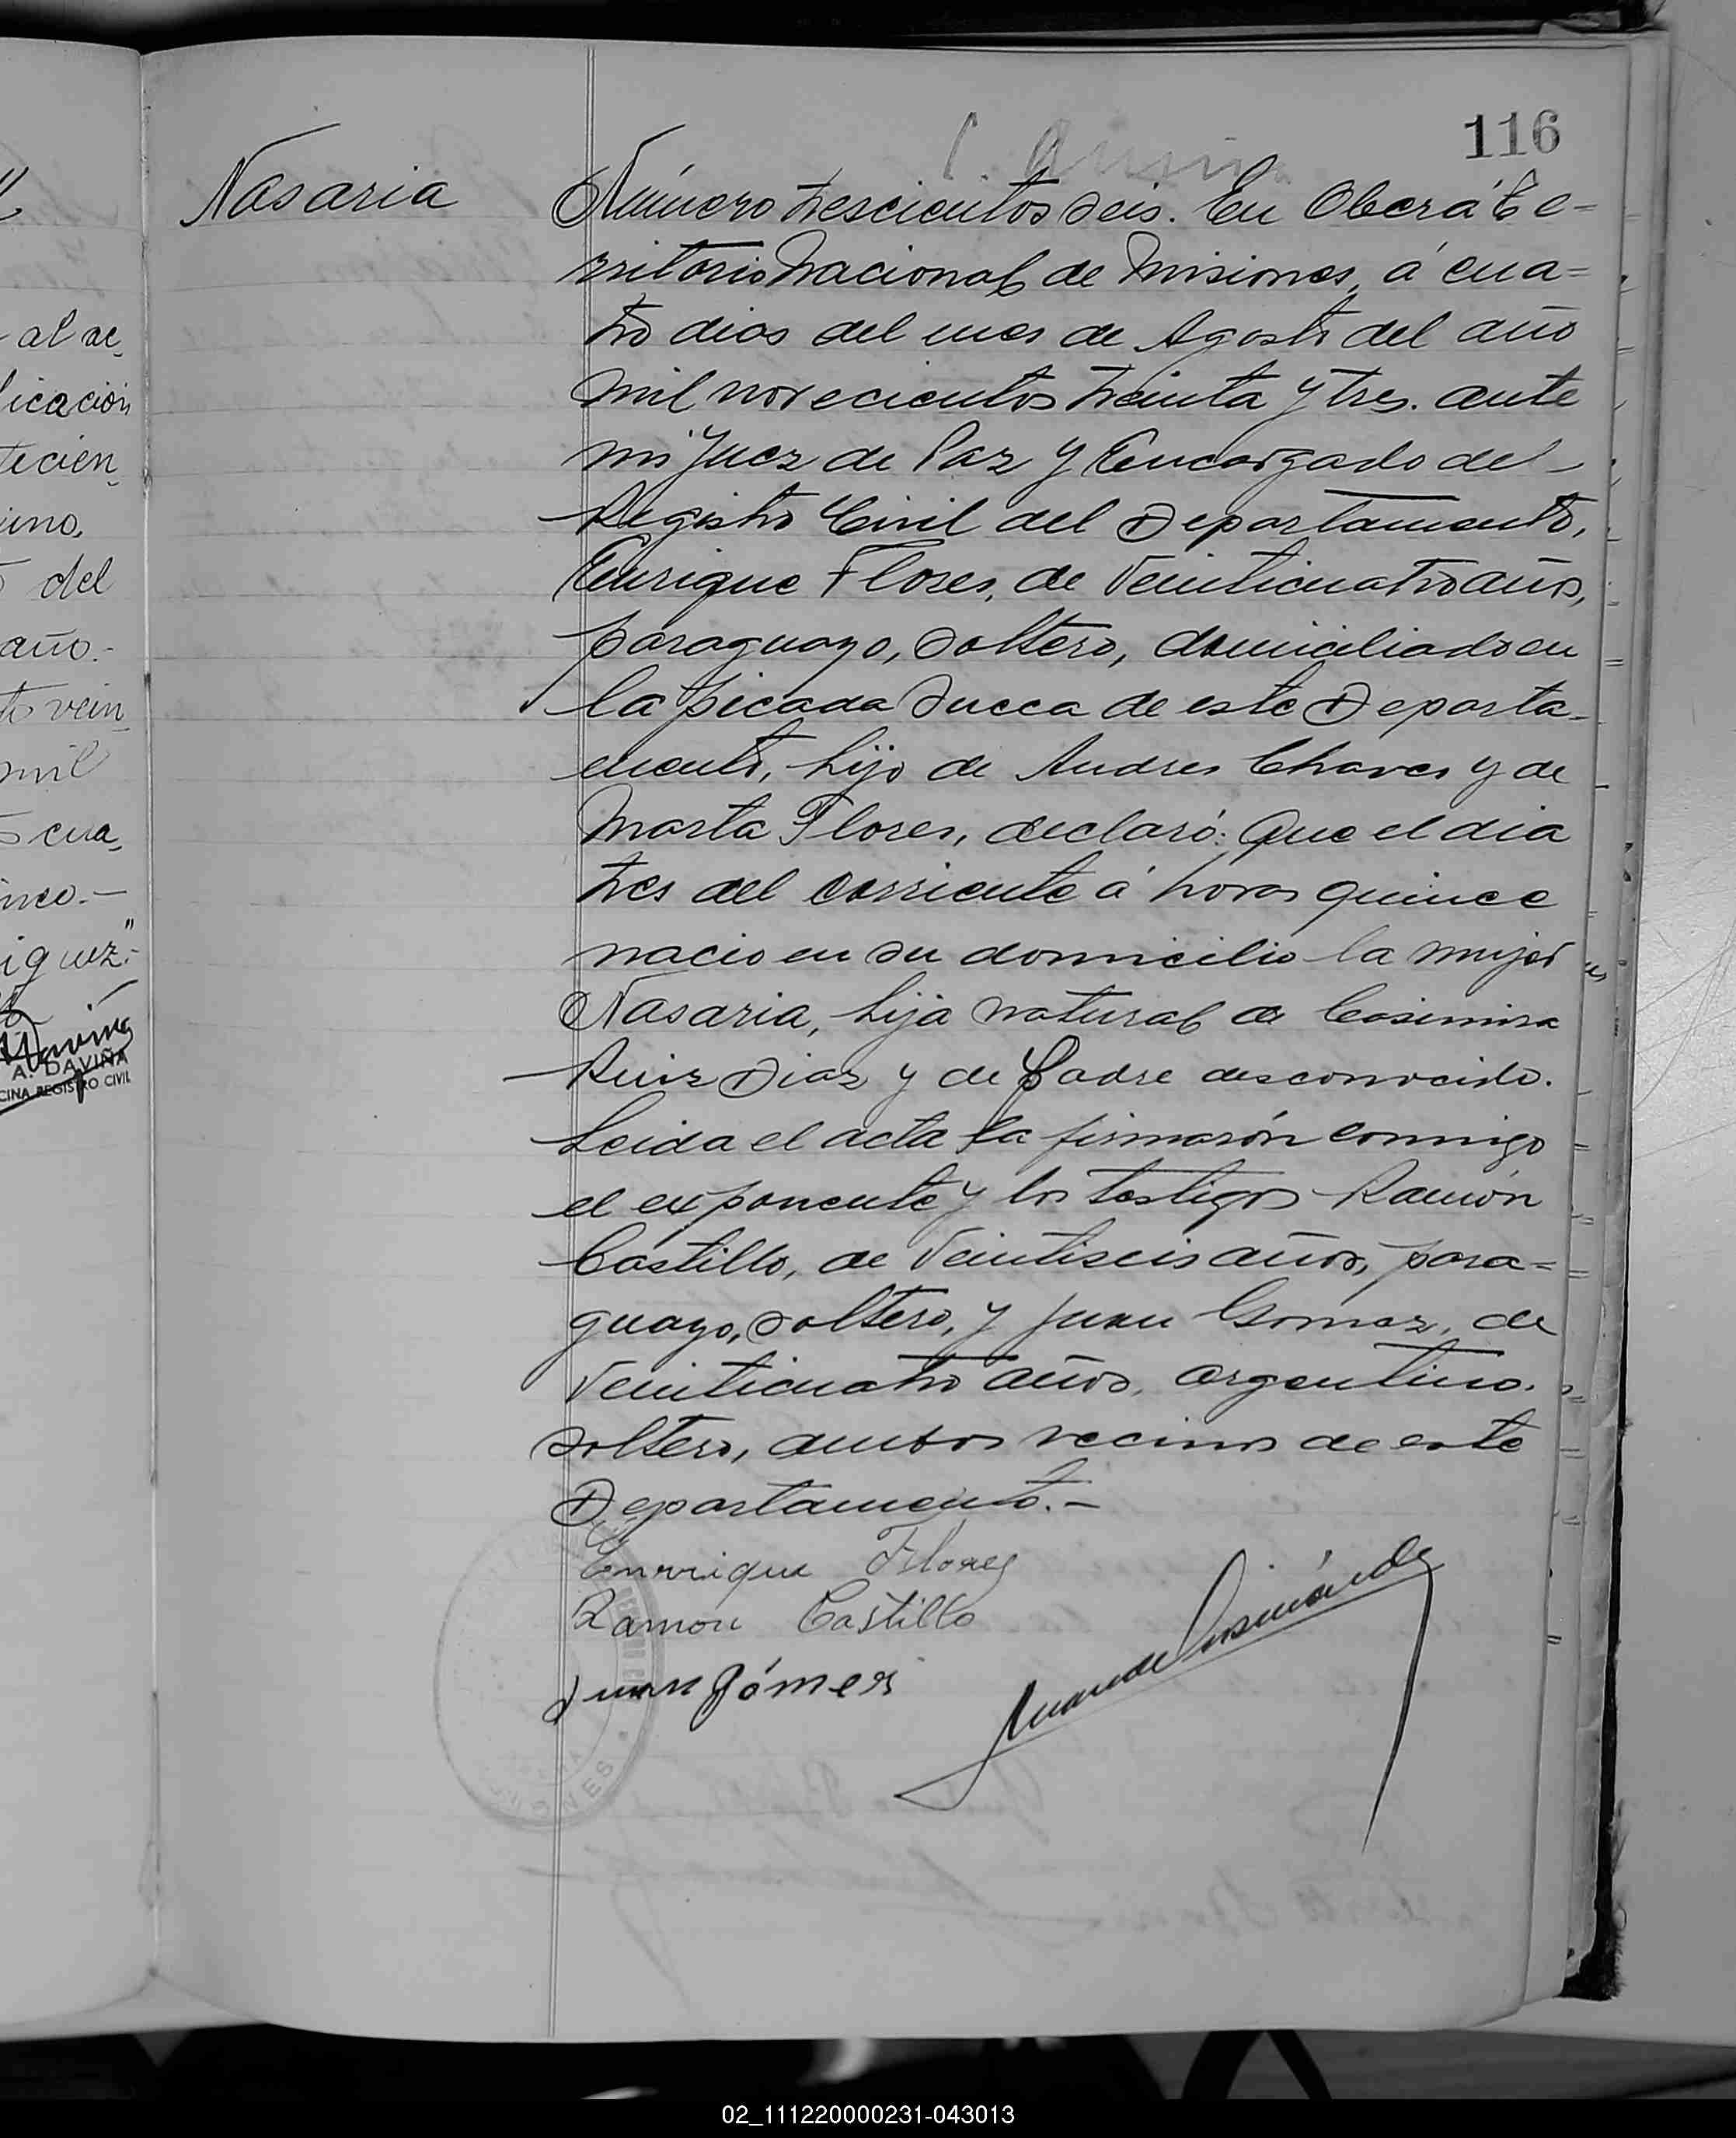 116
Nasaria
Número trescientos seis. En Oberá Te-
rritorio Nacional de Misiones, á cua=
tro dias del mes de Agosto del año
mil novecientos treinta y tres. ante
mi Juez de Paz y Encargado del
Registro Civil del Departamento,
Enrique Flores, de Veinticuatro años,
paraguayo, soltero, domiciliado en
la picada Sueca de este Departa-
mento, hijo de Andres Chaves y de
Marta Flores, declaró: Que el dia
tres del corriente á horas quince
nacio en su domicilio la mujer
Nasaria, hija natural de Casimira
Ruiz Diaz y de Padre desconocido.
Leida el acta la firmarón conmigo
el exponente y los testigos Ramón
Castillo, de Veintiseis años, para=
guayo, soltero, y Juan Gomez, de
Veinticuatro años, argentino.
soltero, ambos vecinos de este
Departamento.-
Enrrique Flores
Ramon Castillo
Juan Gómes
al ac,
licación
tecien,
uno,
del
año.-
vein
mil
cua,
inco.-
iguez.-"
A. DAVIÑA
CINA REGISTRO CIVIL
02_111220000231-043013